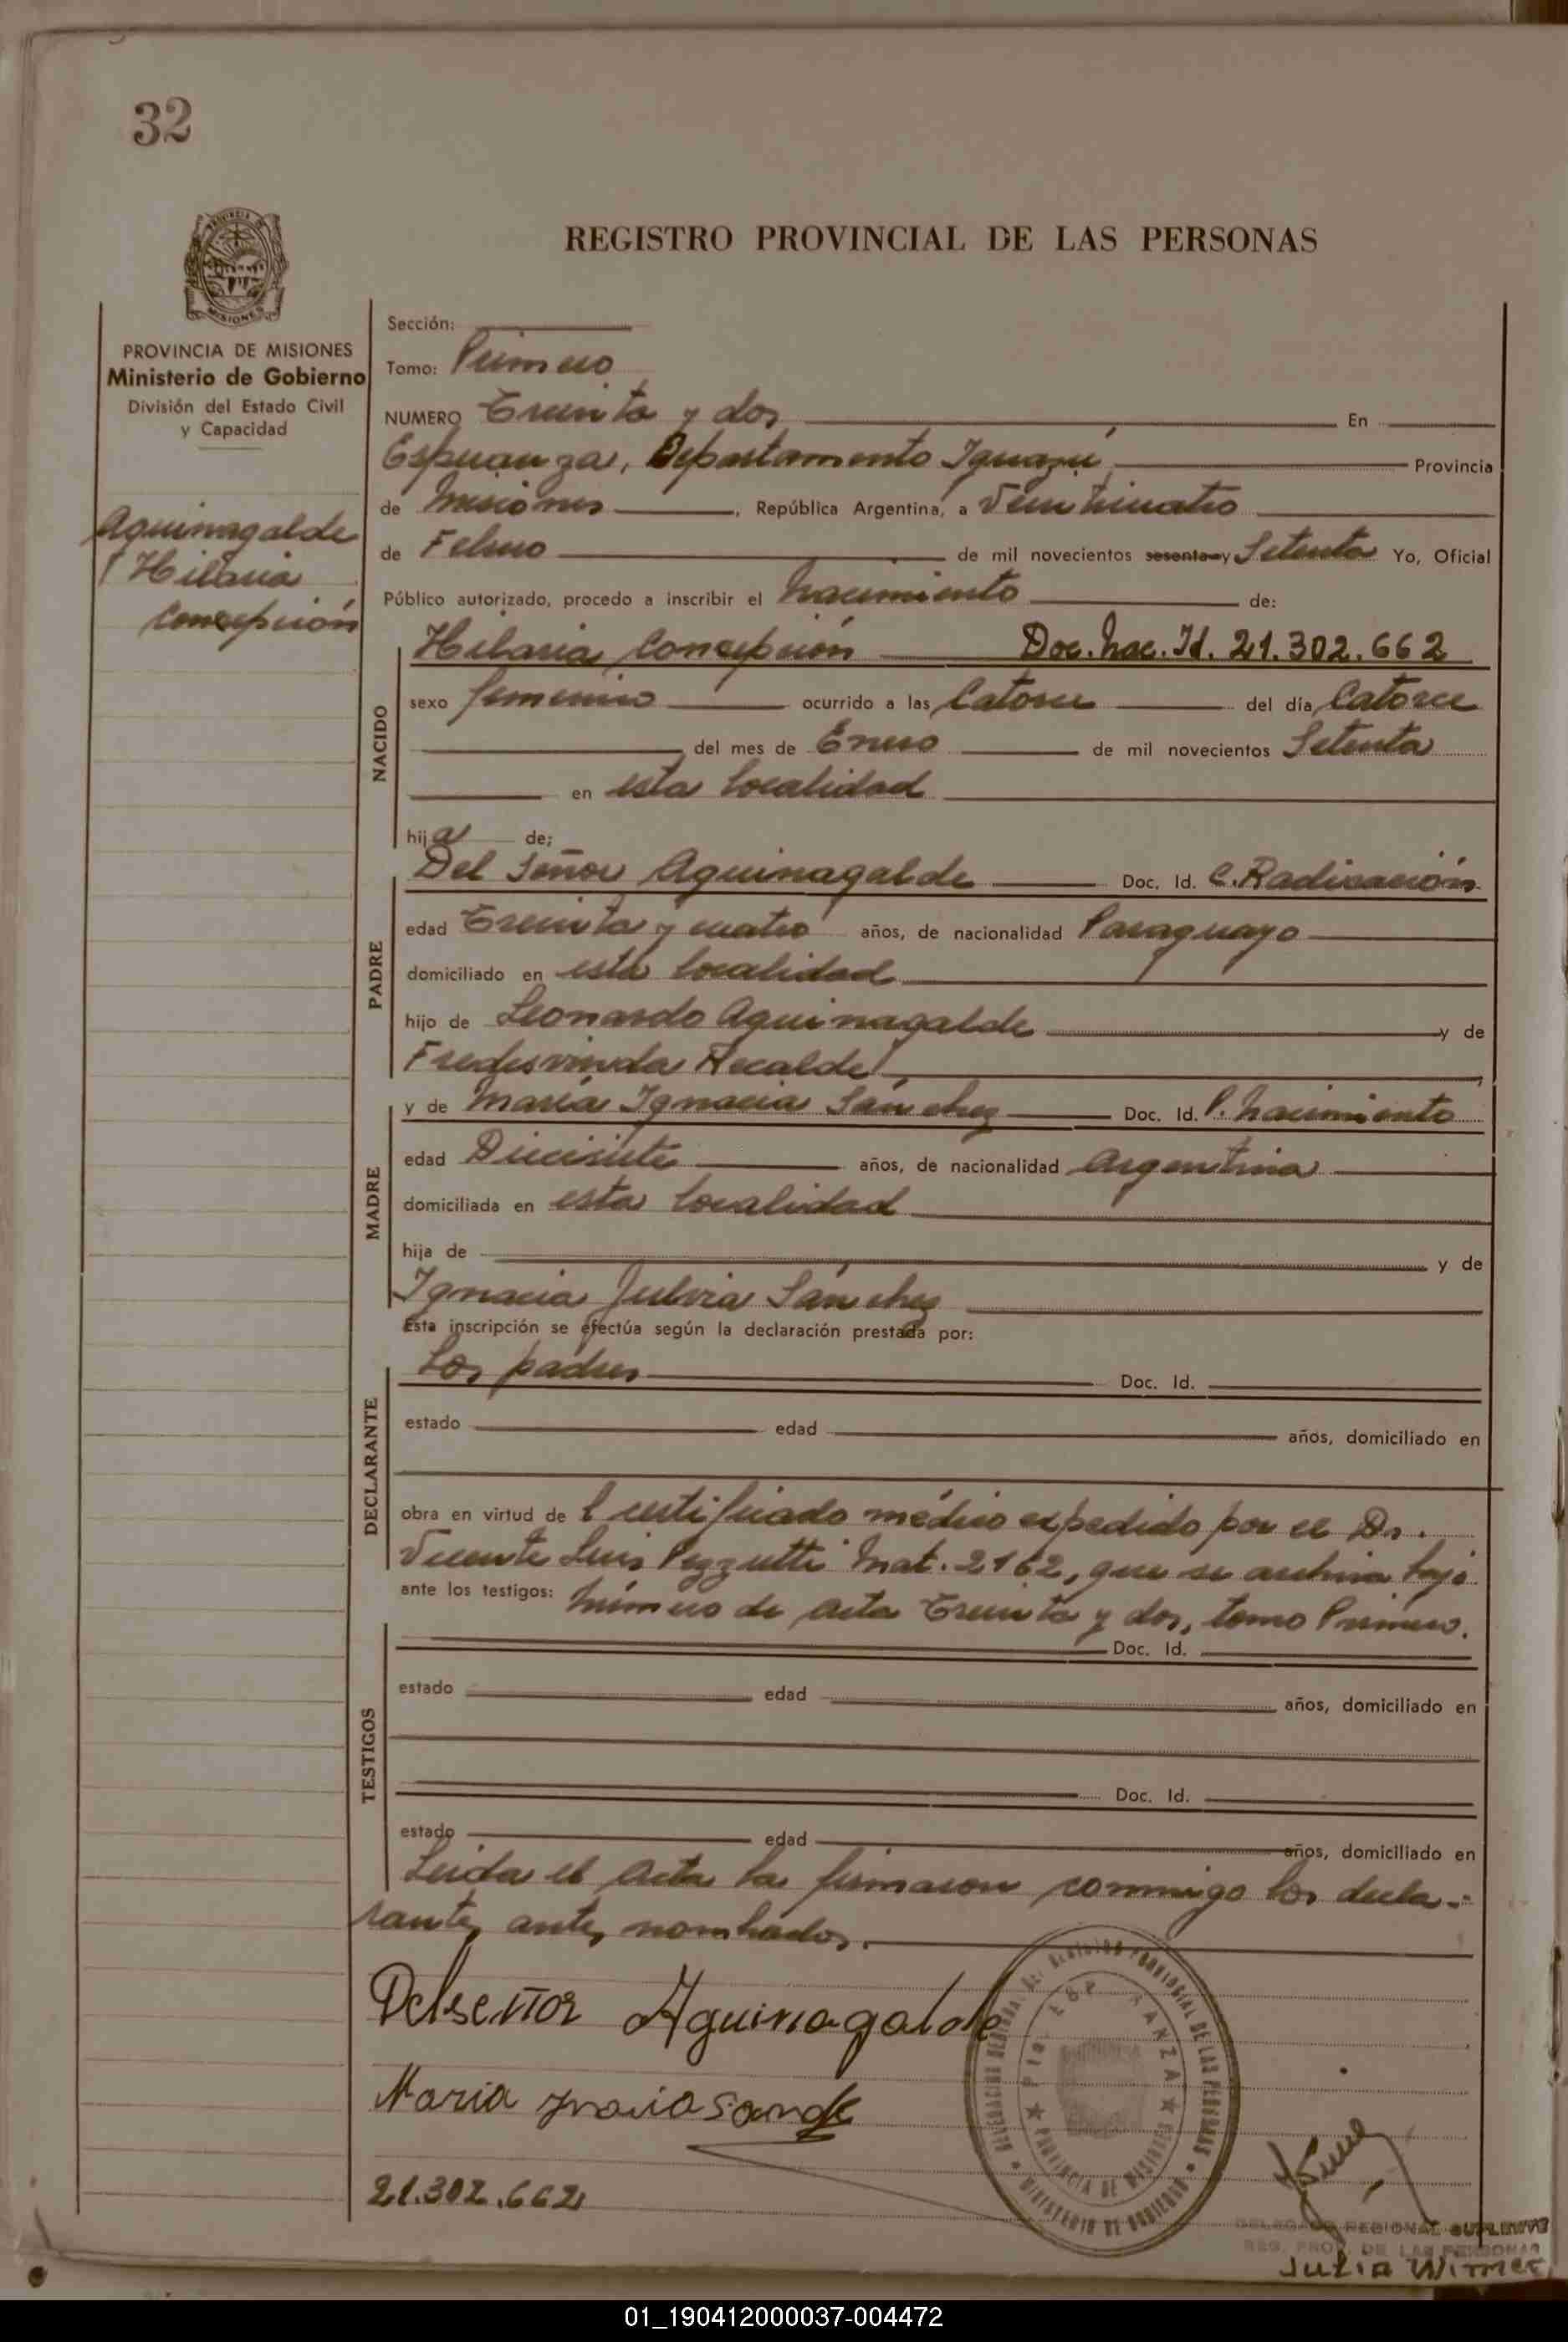 32
REGISTRO PROVINCIAL DE LAS PERSONAS
MISIONES
PROVINCIA DE MISIONES
Ministerio de Gobierno
División del Estado Civil
y Capacidad
Aguinagalde
Hilaria
Concepción
Sección:
Tomo: Primero
NUMERO Treinta y dos En
Esperanza, Departamento Iguazú Provincia
de Misiones, República Argentina, a Veinticuatro
de Febrero de mil novecientos sesenta y Setenta Yo, Oficial
Público autorizado, procedo a inscribir el Nacimiento de:
NACIDO
Hilaria Concepción Doc. Nac. Id. 21.302.662
sexo femenino ocurrido a las Catorce del día Catorce
del mes de Enero de mil novecientos Setenta
en esta localidad
hija de;
PADRE
Del Señor Aguinagalde Doc. Id. C. Radicación
edad Treinta y cuatro años, de nacionalidad Paraguayo
domiciliado en esta localidad
hijo de Leonardo Aguinagalde y de
Fredesvinda Recalde
MADRE
y de María Ignacia Sánchez Doc. Id. P. Nacimiento
edad Diecisiete años, de nacionalidad Argentina
domiciliada en esta localidad
hija de y de
Ignacia Julvia Sánchez
Esta inscripción se efectúa según la declaración prestada por:
DECLARANTE
Los padres Doc. Id.
estado edad años, domiciliado en
obra en virtud de l certificado médico expedido por el Dr.
Vicente Luis Pezzutti Mat. 2162, que se archiva bajo
ante los testigos: Número de Acta Treinta y dos, tomo Primero.
TESTIGOS
Doc. Id.
estado edad años, domiciliado en
Doc. Id.
estado edad años, domiciliado en
Leida el Acta la firmaron conmigo los decla-
rantes antes nombrados.
Delseñor Aguinagalde
Maria
21.302.662
Pto. ESPERANZA
PROVINCIA DE MISIONES
MINISTERIO DE GOBIERNO
DELEGADO REGIONAL SUPLENTE
REG. PROV. DE LAS PERSONAS
01_190412000037-004472